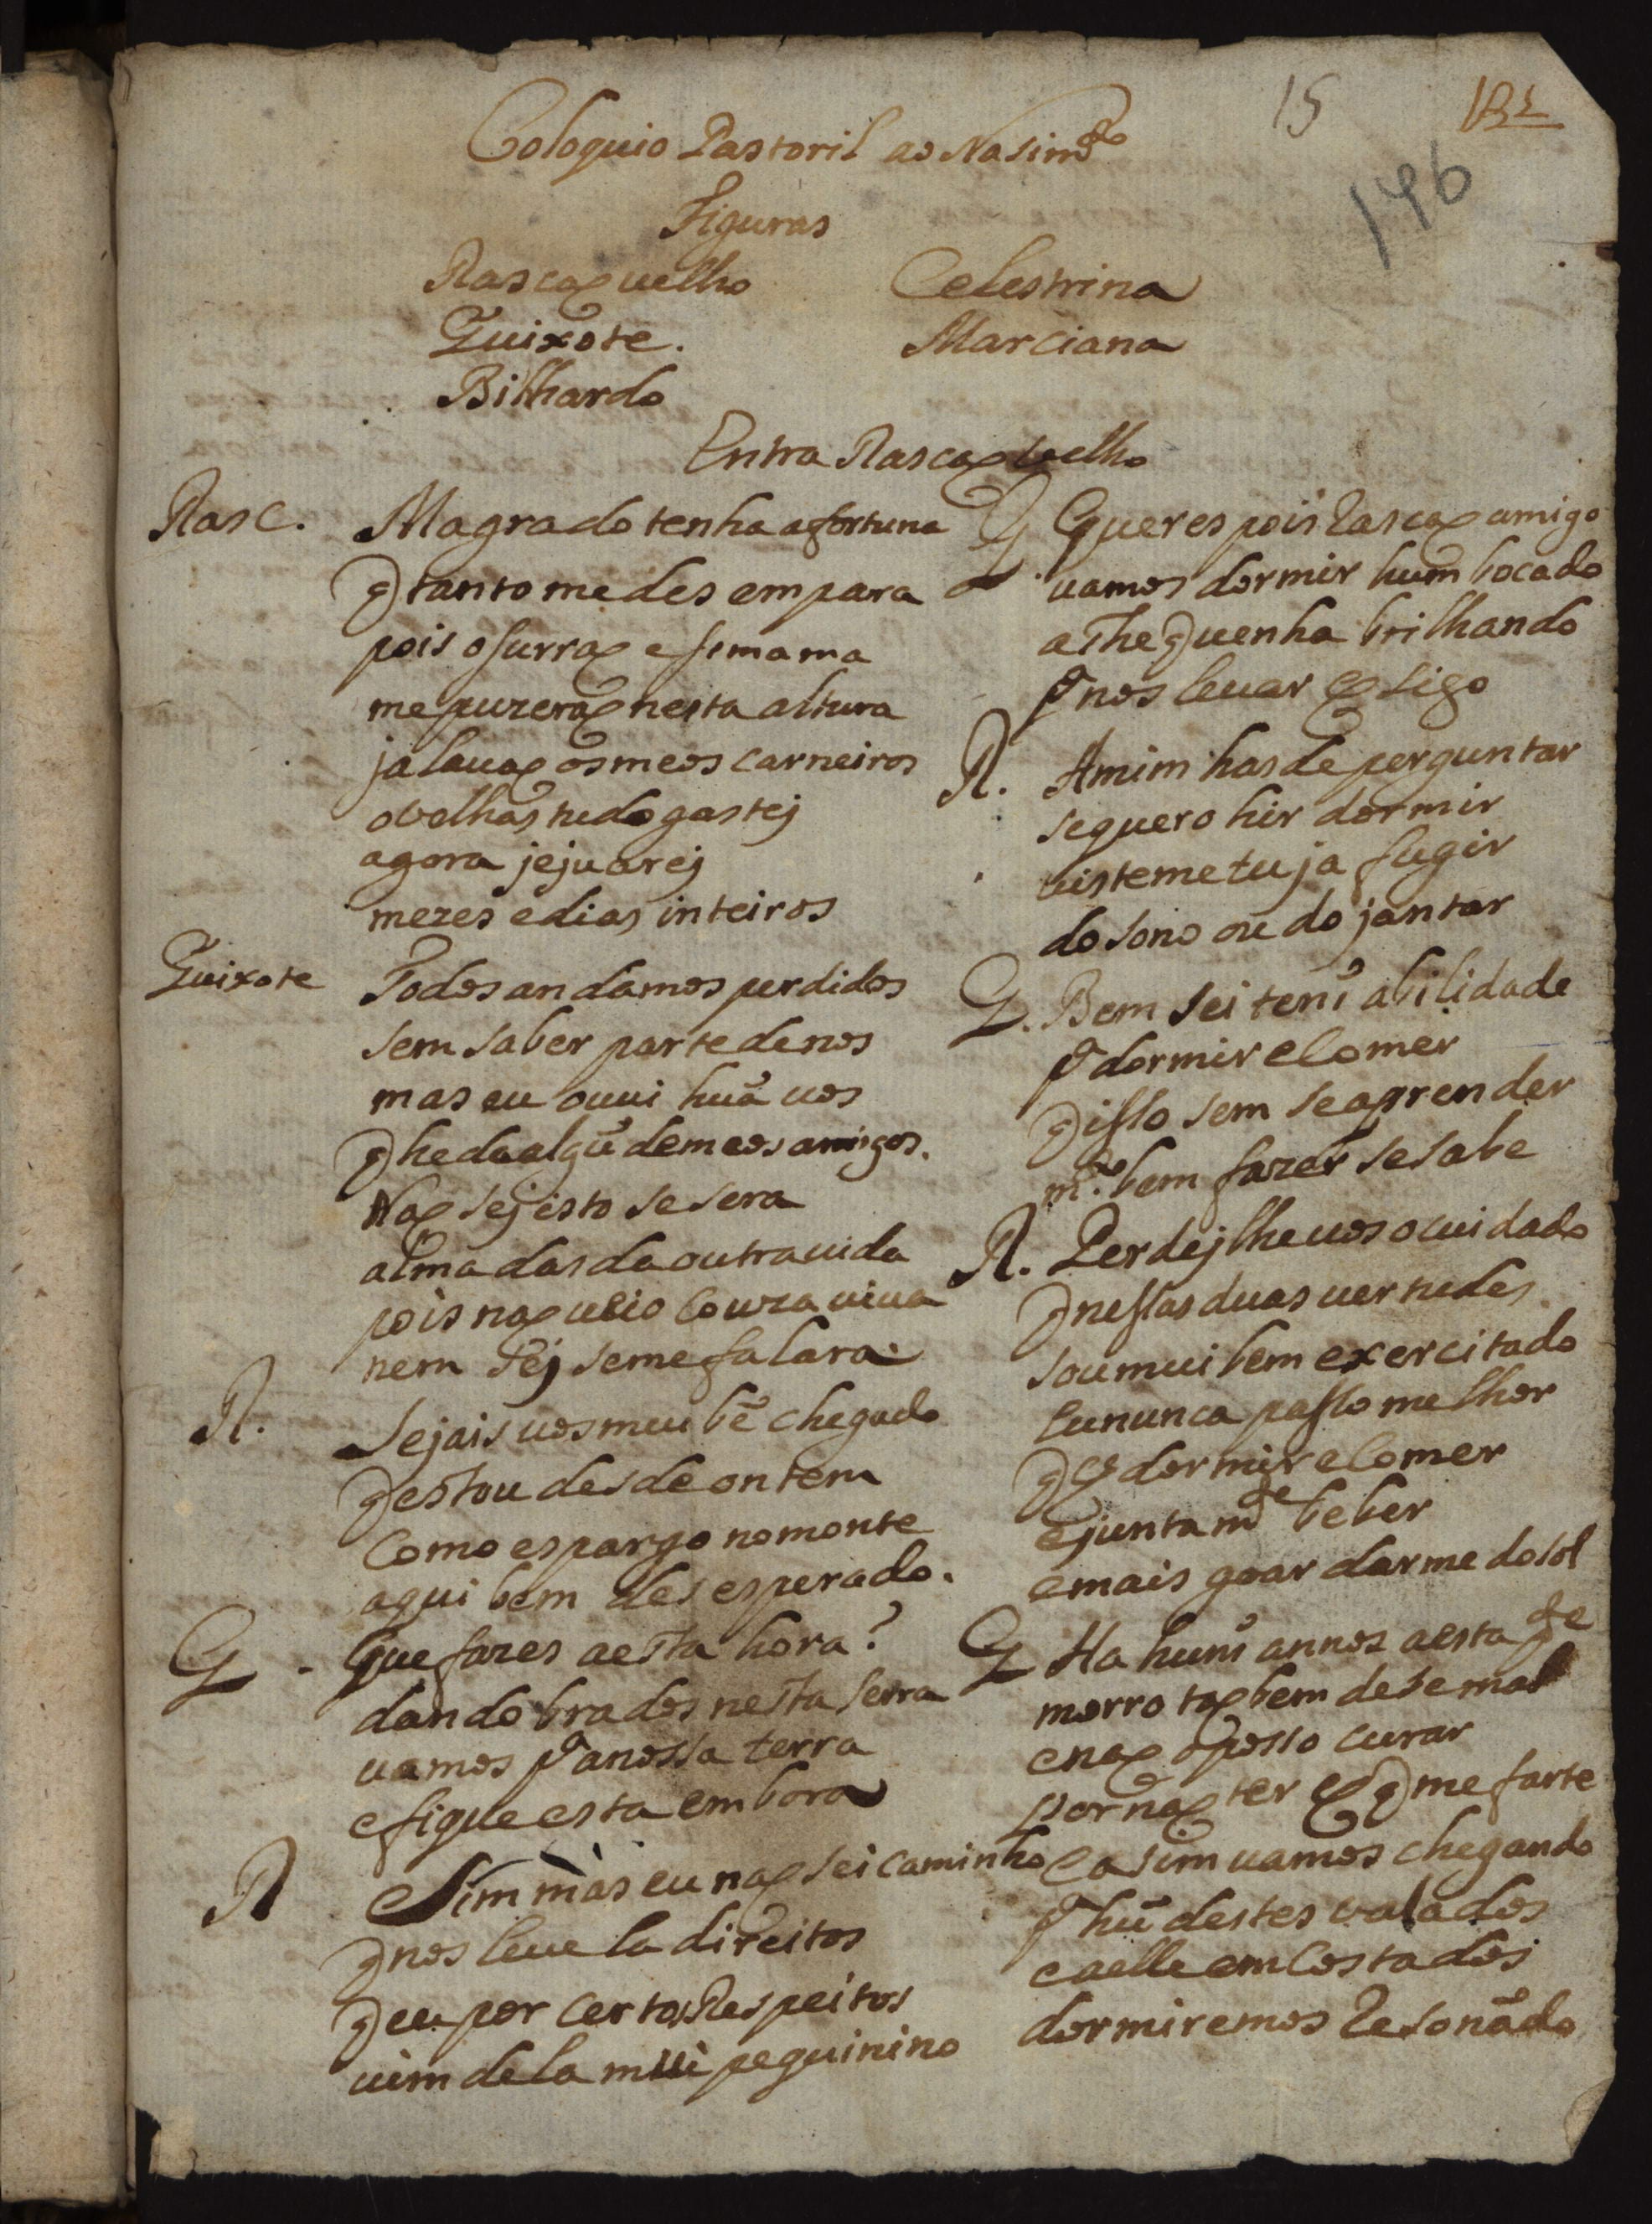 15
132
196
Coloquio Pastoril ao Nasim.to
Figuras
Rascaõ uelho
Celestrina
Guixote.
Marciana
Bilhardo
Entra Rascaõ uelho
Rasc. Magra do tenha a fortuna
q̃ tanto me des empara
pois o surraõ e
me puzeraõ nesta altura
ja lauaõ os meos carneiros
ovelhas tudo gastej
agora jejuarej
mezes e dias inteiros
Guixote Todos andamos perdidos
sem saber parte de nos
mas eu ouui huã uos
q̃ he da algũ de meos amigos.
Naõ sej isto se sera
alma das da outra uida
pois naõ ueio couza uiua
nem sej se me falara.
R. Sejais uos meu bẽ chegado
q̃ estou desde ontem
Como espargo no monte
aqui bem desesperado.
G. Que fazes a esta hora?
dando brados nesta serra
uamos p.a a nossa terra
e fique esta embora
R Sim mas eu naõ sei caminho
q̃ nos leue la direitos
q̃ eu por certos Respeitos
uim de la mui pequinino
G Queres pois Rascaõ amigo
uamos dormir hum bocado
athe q̃ uenha brilhando
p.a nos leuar cõ sigo
R. A mim has de perguntar
se quero hir dormir
uisteme tu ja fugir
do sono ou do jantar
G. Bem sei tens abilidade
p.a dormir e Comer
q̃ isso sem se aprender
m.to bem fazer se sabe
R. Perdej lhe uos o cuidado
q̃ nestas duas uertudes
sou mui bem exercitado
Eu nunca passo melhor
q̃ cõ dormir e Comer
e juntam.te beber
e mais goardarme do sol
G Ha huns annos a esta p.te
morro taõbem dese mal
e naõ o posso curar
por naõ ter cõ q̃ me farte
e asim uamos chegando
p.a hũ destes valados
e a elle emCostados
dormiremos Resonãdo